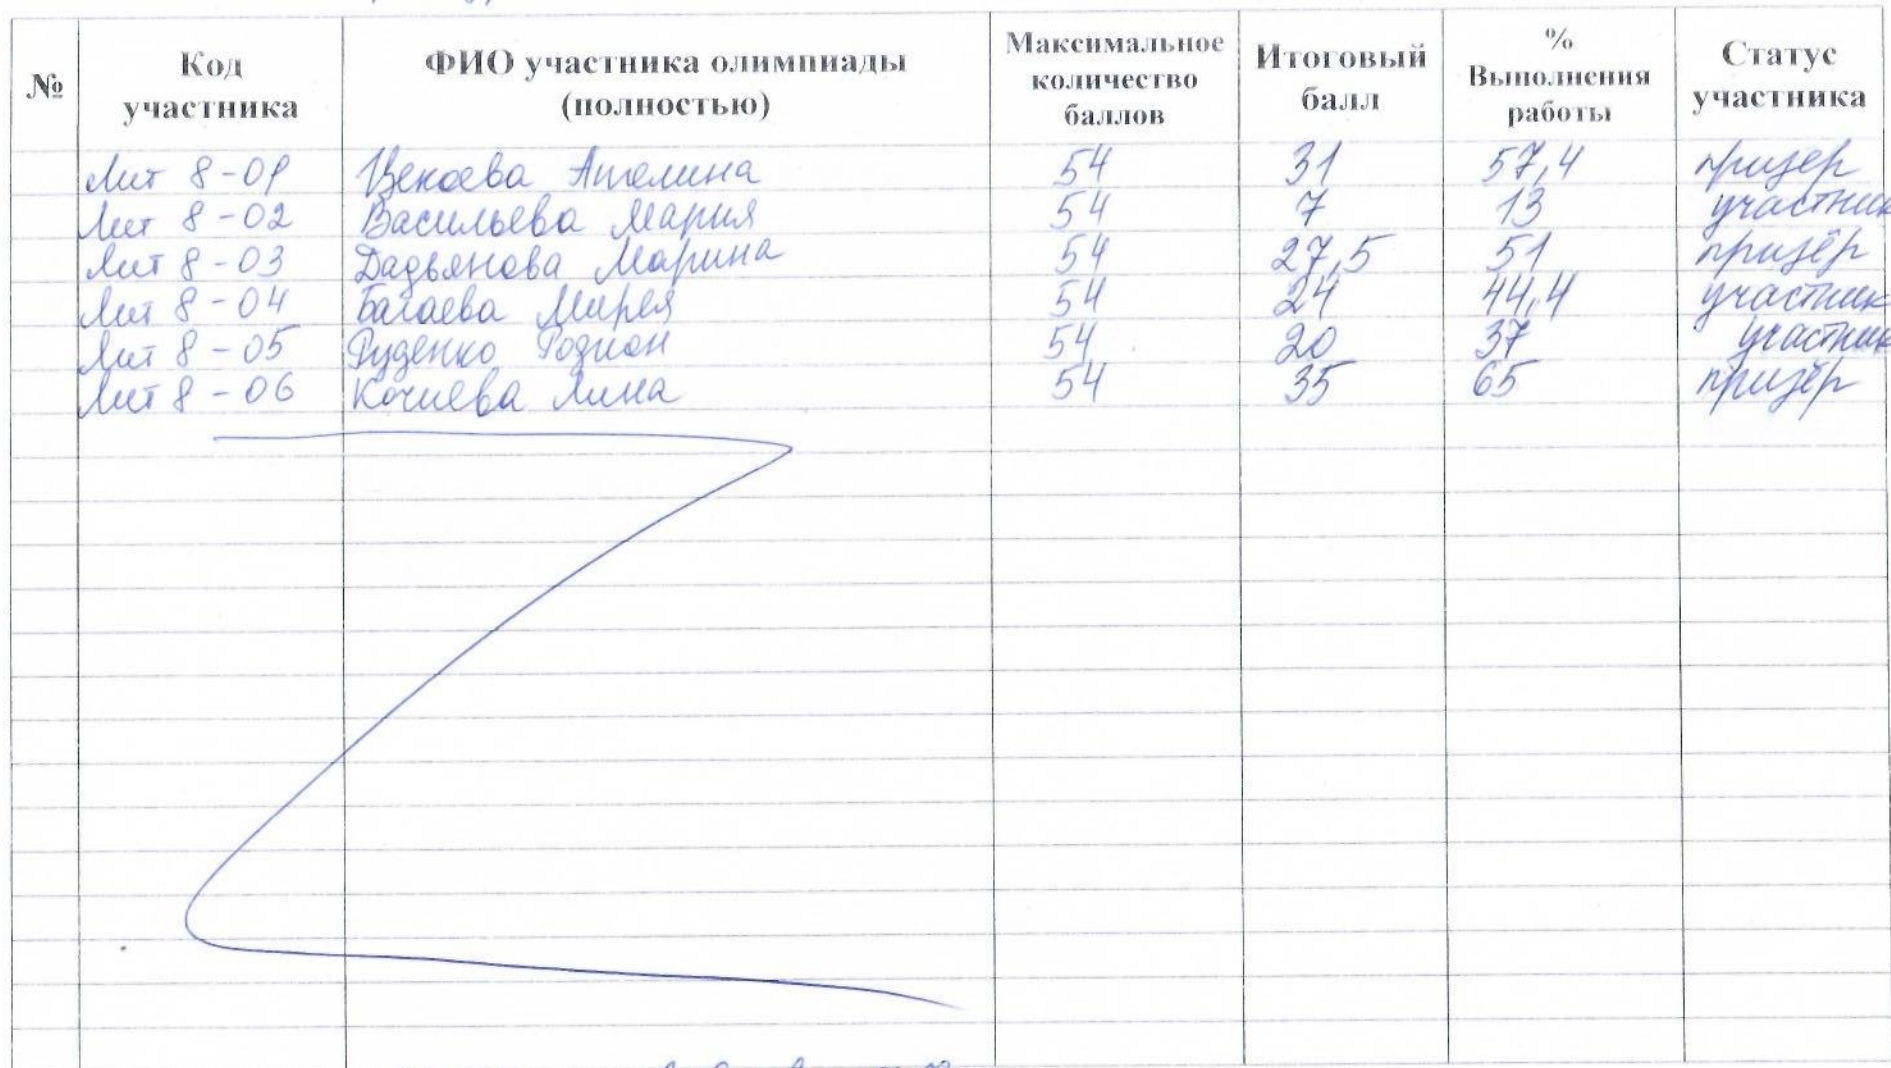 № Код участника ФИО участника олимпиады (полностью) Максимальное количество баллов Итоговый балл % Выполнения работы Статус участника
Лит 8-01 Цекоева Ангелина 54 31 57,4 призёр
Лит 8-02 Васильева Мария 54 7 13 участник
Лит 8-03 Дадьянова Марина 54 27,5 51 призёр
Лит 8-04 Багаева Мирея 54 24 44,4 участник
Лит 8-05 Руденко Родион 54 20 37 участник
Лит 8-06 Кочиева Лина 54 35 65 призёр